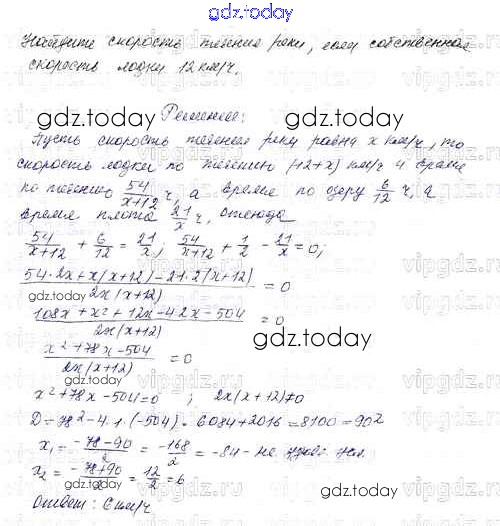 gdz.today
Найдите скорость течения реки, если собственная
скорость лодки 12 км/ч.
gdz.today
Решение:
Пусть скорость течения реки равна x км/ч, то
скорость лодки по течению (12+x) км/ч и время
по течению 54/(x+12) ч, а время по озеру 6/12 ч, а
время плота 21/x ч, отсюда
54/(x+12) + 6/12 = 21/x; 54/(x+12) + 1/2 - 21/x = 0;
(54·2x+x(x+12)-21·2(x+12))/(2x(x+12)) = 0
gdz.today
(108x+x²+12x-42x-504)/(2x(x+12)) = 0
gdz.today
(x²+78x-504)/(2x(x+12)) = 0
x²+78x-504=0 ; 2x(x+12)≠0
gdz.today
D=78²-4·1·(-504)=6084+2016=8100=90²
x₁=(-78-90)/2 = -168/2 = -84 - не удов. усл.
x₂=(-78+90)/2 = 12/2 = 6
gdz.today
gdz.today
Ответ: 6 км/ч
vipgdz.ru